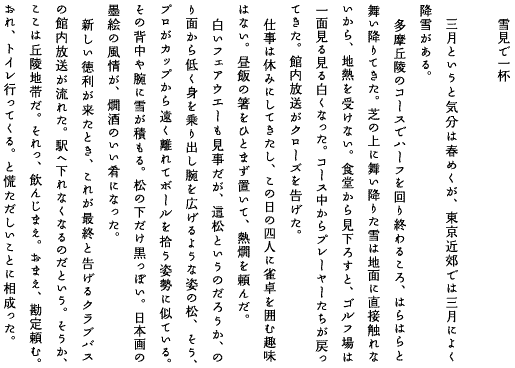 雪見で一杯
三月というと気分は春めくが、東京近郊では三月によく
降雪がある。
多摩丘陵のコースでハーフを回り終わるころ、はらはらと
舞い降りてきた。芝の上に舞い降りた雪は地面に直接触れな
いから、地熱を受けない。食堂から見下ろすと、ゴルフ場は
一面見る見る白くなった。コース中からプレーヤーたちが戻っ
てきた。館内放送がクローズを告げた。
仕事は休みにしてきたし、この日の四人に雀卓を囲む趣味
はない。昼飯の箸をひとまず置いて、熱燗を頼んだ。
白いフェアウエーも見事だが、這松というのだろうか、の
り面から低く身を乗り出し腕を広げるような姿の松、そう、
プロがカップから遠く離れてボールを拾う姿勢に似ている。
その背中や腕に雪が積もる。松の下だけ黒っぽい。日本画の
墨絵の風情が、燗酒のいい肴になった。
新しい徳利が来たとき、これが最終と告げるクラブバス
の館内放送が流れた。駅へ下れなくなるのだという。そうか、
ここは丘陵地帯だ。それっ、飲んじまえ。おまえ、勘定頼む。
おれ、トイレ行ってくる。と慌ただしいことに相成った。